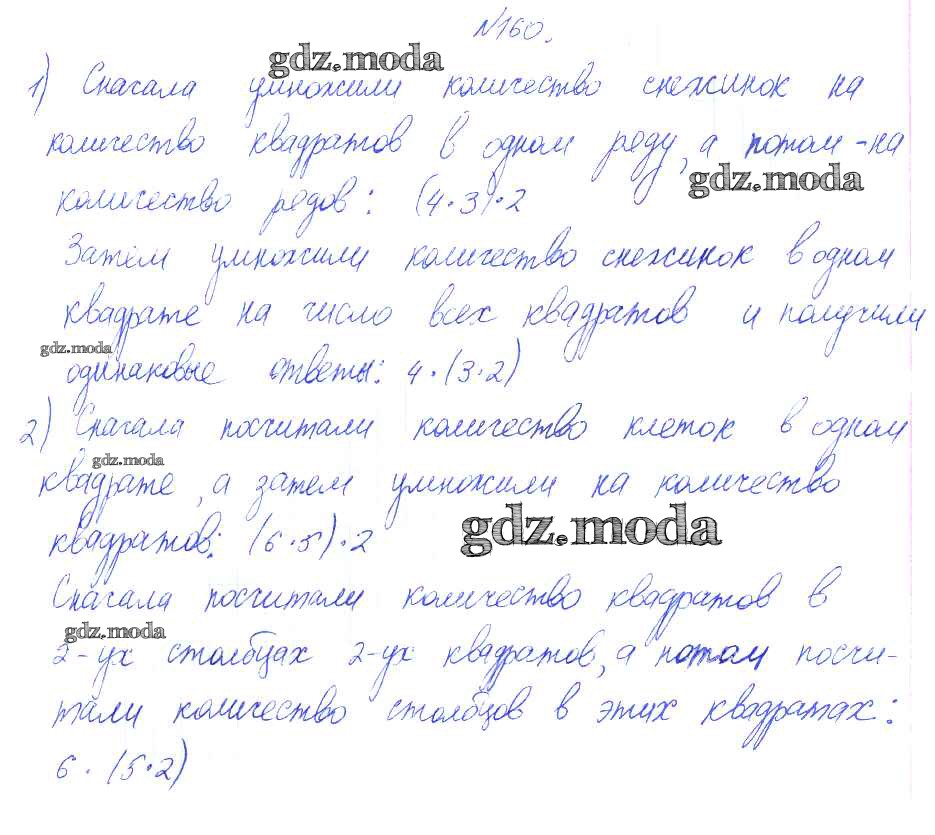 №160.
gdz.moda
1) Сначала умножили количество снежинок на
количество квадратов в одном ряду, а потом - на
gdz.moda
количество рядов: (4·3)·2
Затем умножили количество снежинок в одном
квадрате на число всех квадратов и получили
gdz.moda
одинаковые ответы: 4·(3·2)
2) Сначала посчитали количество клеток в одном
gdz.moda
квадрате, а затем умножили на количество
квадратов: (6·5)·2
gdz.moda
Сначала посчитали количество квадратов в
gdz.moda
2-ух столбцах 2-ух квадратов, а потом посчи-
тали количество столбцов в этих квадратах:
6·(5·2)